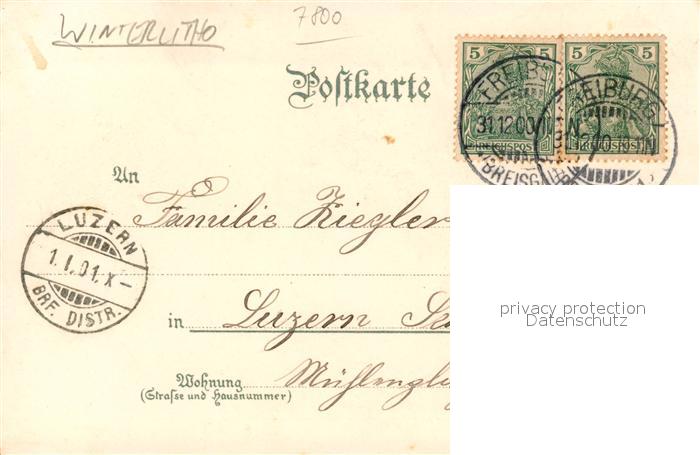 WINTERLITHO
7800
Postkarte
5 5 5 5
REICHSPOST REICHSPOST
FREIB
31.12.00
BREISGAU
FREIBURG
An
Familie Ziegler
LUZERN
1. I. 01. X –
BRF. DISTR.
in Luzern
Wohnung
(Straße und Hausnummer)
privacy protection
Datenschutz